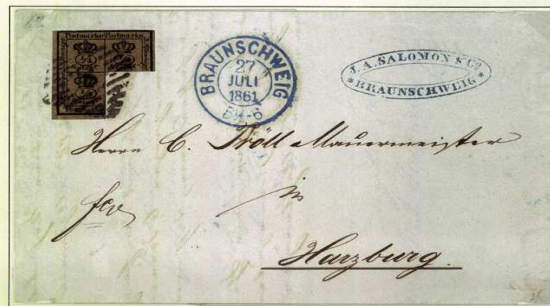 Postmarke Postmarke
BRAUNSCHWEIG
27
JULI
1861
5½-6
J. A. SALOMON & Co
* BRAUNSCHWEIG *
Herrn C. Tröll Mauermeister
in
fco
Harzburg.